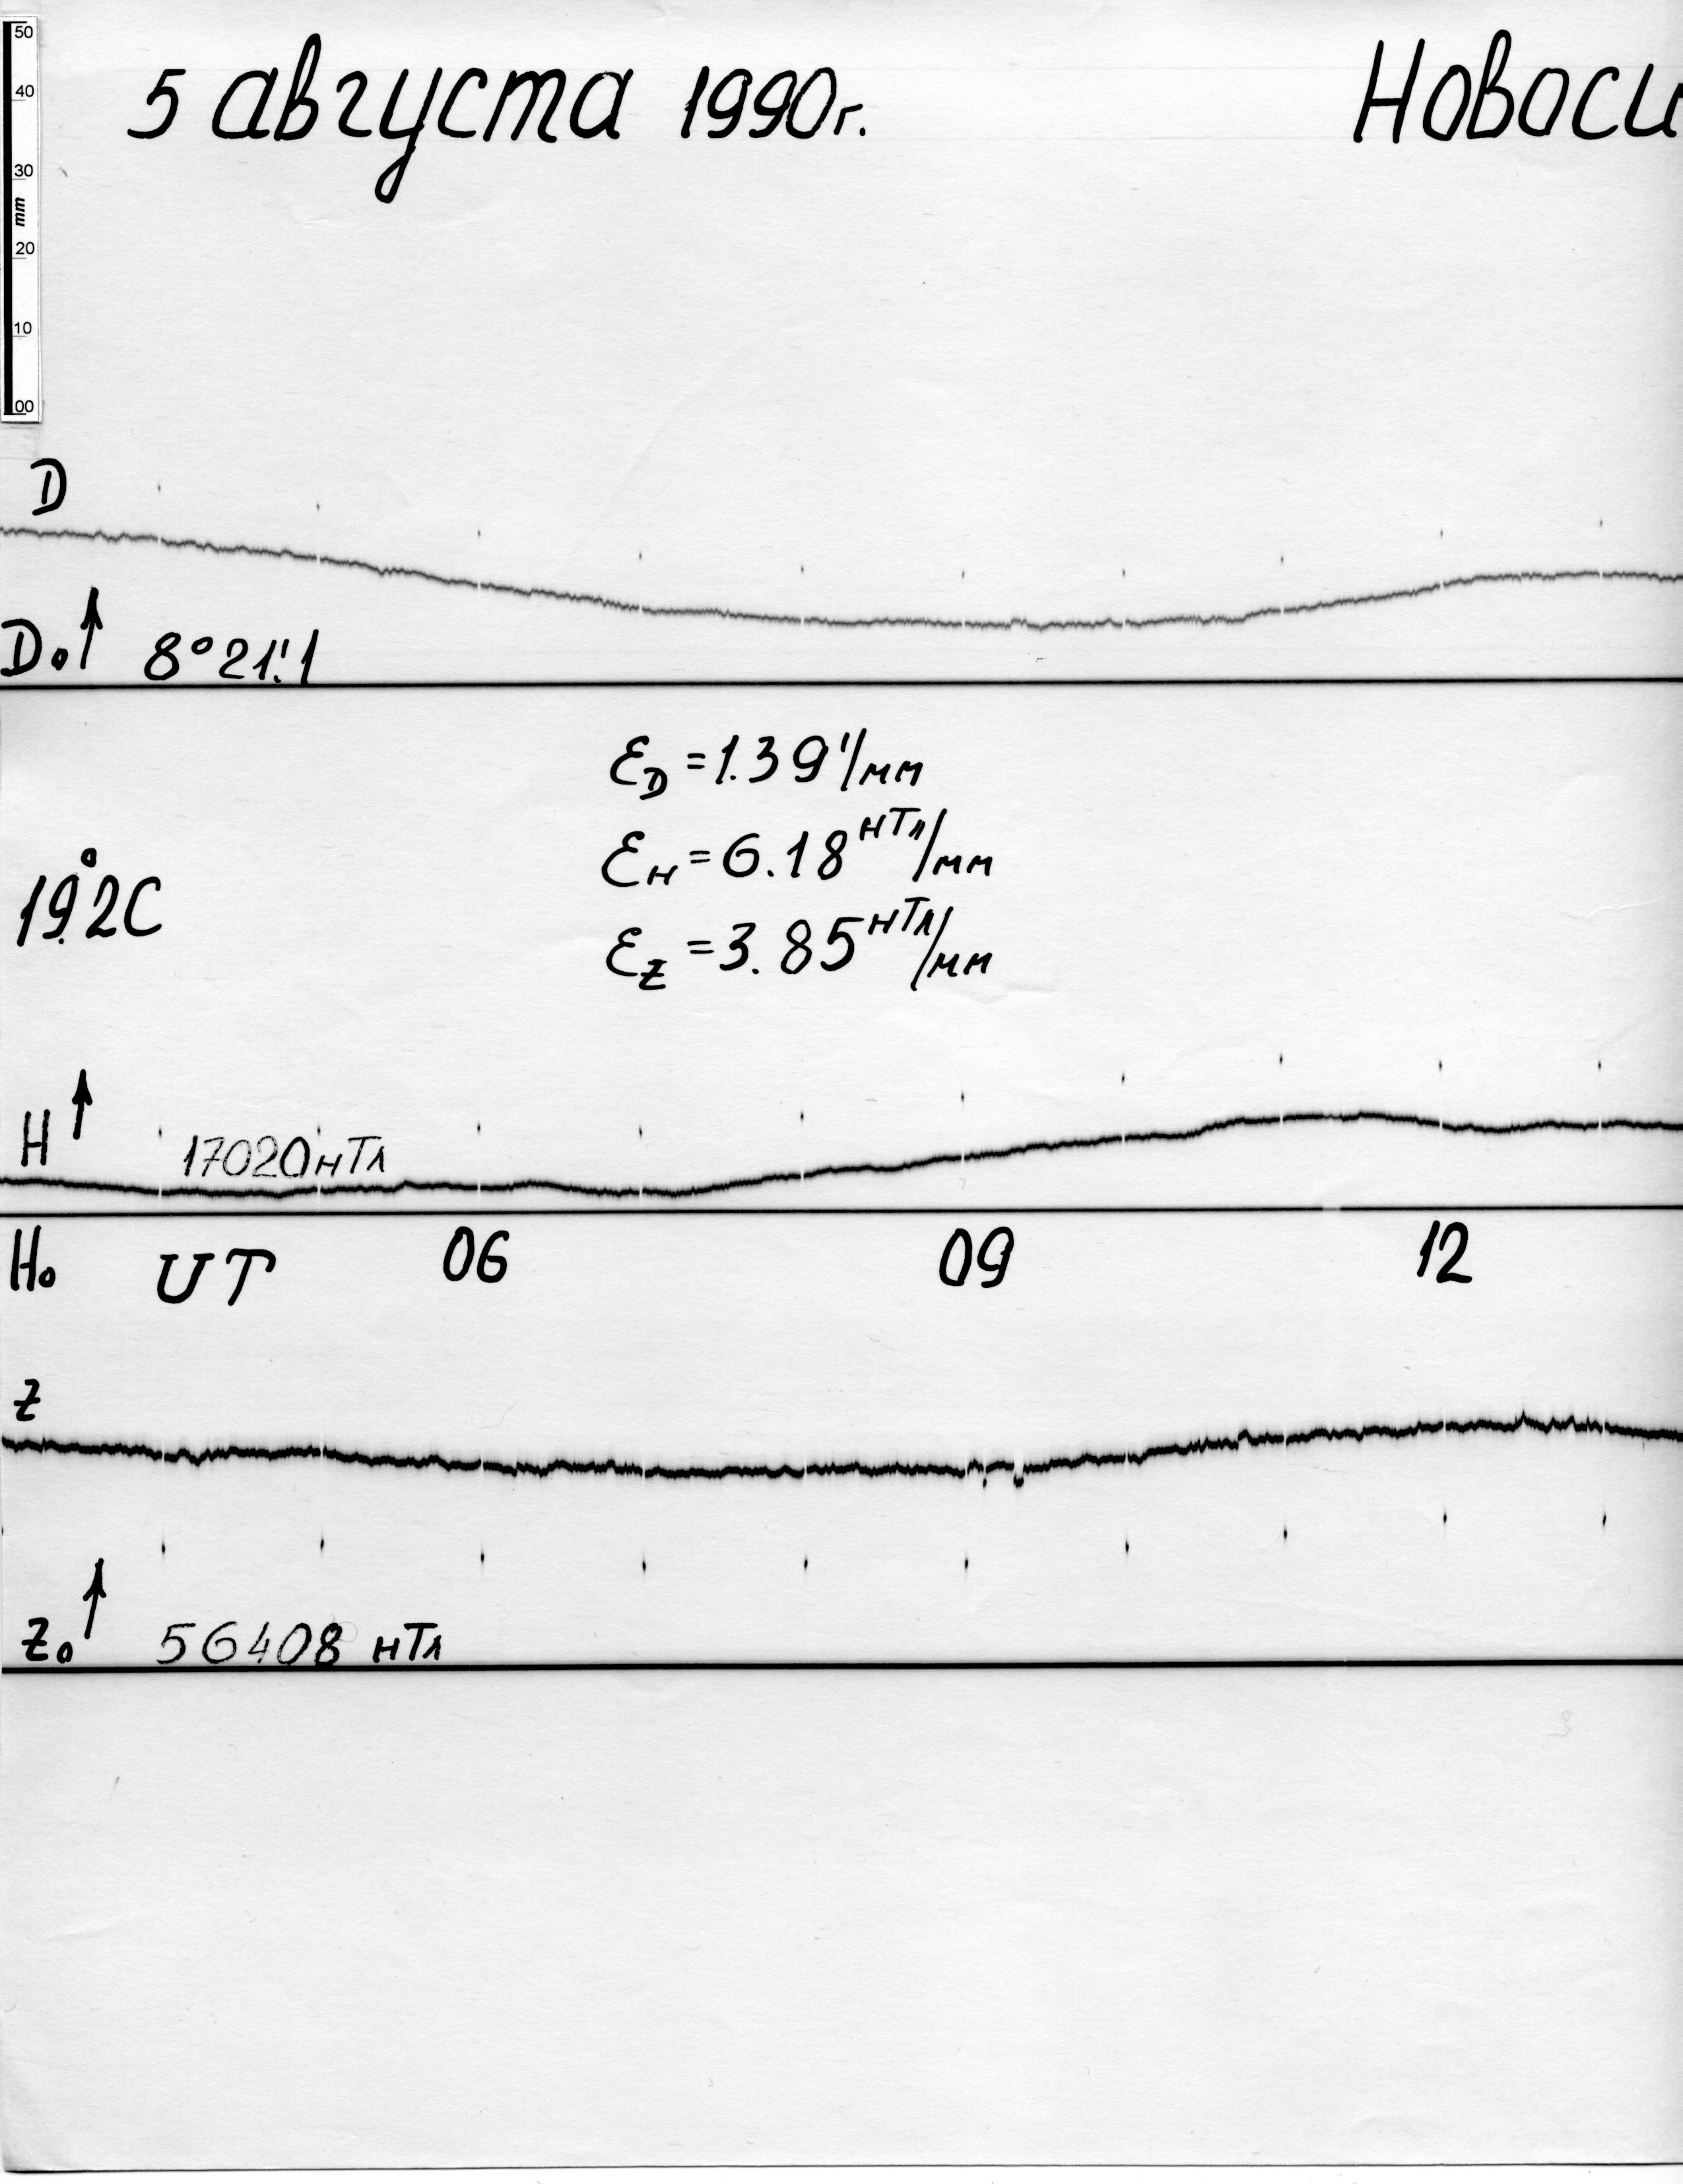 50
40
30
mm
20
10
00
5 августа 1990г.
Новоси
D
D₀ 8°21'.1
ε_D = 1.39'/мм
ε_H = 6.18 нТл/мм
ε_Z = 3.85 нТл/мм
19.°2C
H 17020нТл
H₀ UT 06 09 12
Z
Z₀ 56408 нТл